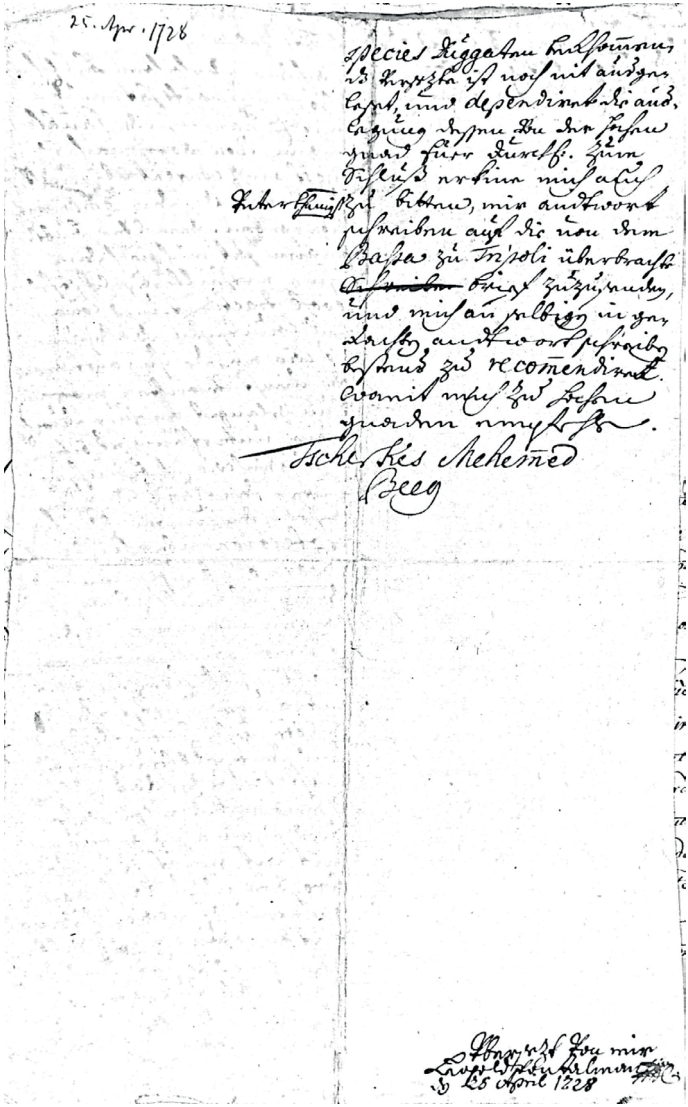 25. Apr. 1728
species Duggaten bekhommen,
ist noch nit ausge-
leset, und dependiret die aus-
legung dessen von der hohen
gnad Euer Durchl. Zum
Schluß erkine mich auch
zu bitten, mir andtwort
schreiben auf die von dem
Bassa zu Tripoli überbrachte
Schreiben brief zuzusenden,
und mich an selbigen in ge-
dachten andtwort schreiben
bestens zu recommendiren.
womit mich zu hohen
gnaden empfehle.
Tscherkes Mehemed
Beeg
von mir
Leopold Talman
25 April 1728